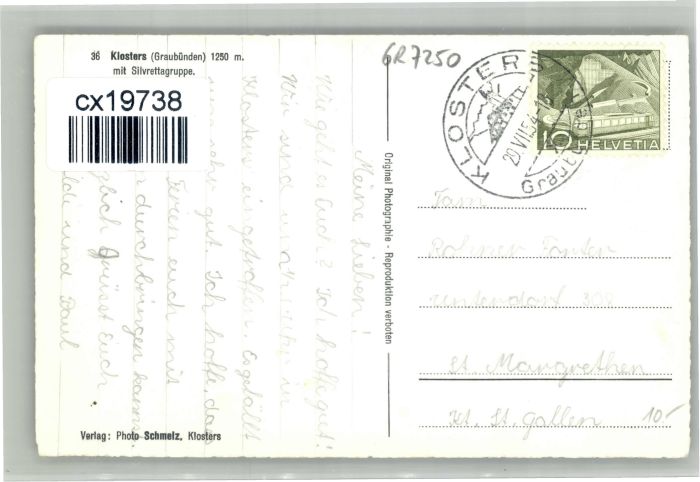 36 Klosters (Graubünden) 1250 m.
mit Silvrettagruppe.
cx19738
6R7250
KLOSTERS
20.VII.54
Graubünden
10 HELVETIA
Meine Lieben!
Wie geht es Euch? Ich hoffe gut!
Wir sind in
Klosters eingetroffen. Es gefällt
sehr gut. Ich hoffe, dass
Ferien auch mit
durchbringen kann.
Grüsst Euch
und Paul
Original Photographie - Reproduktion verboten
Fam.
Rohner
Unterdorf 308
St. Margrethen
Kt. St. Gallen
10-
Verlag: Photo Schmelz, Klosters